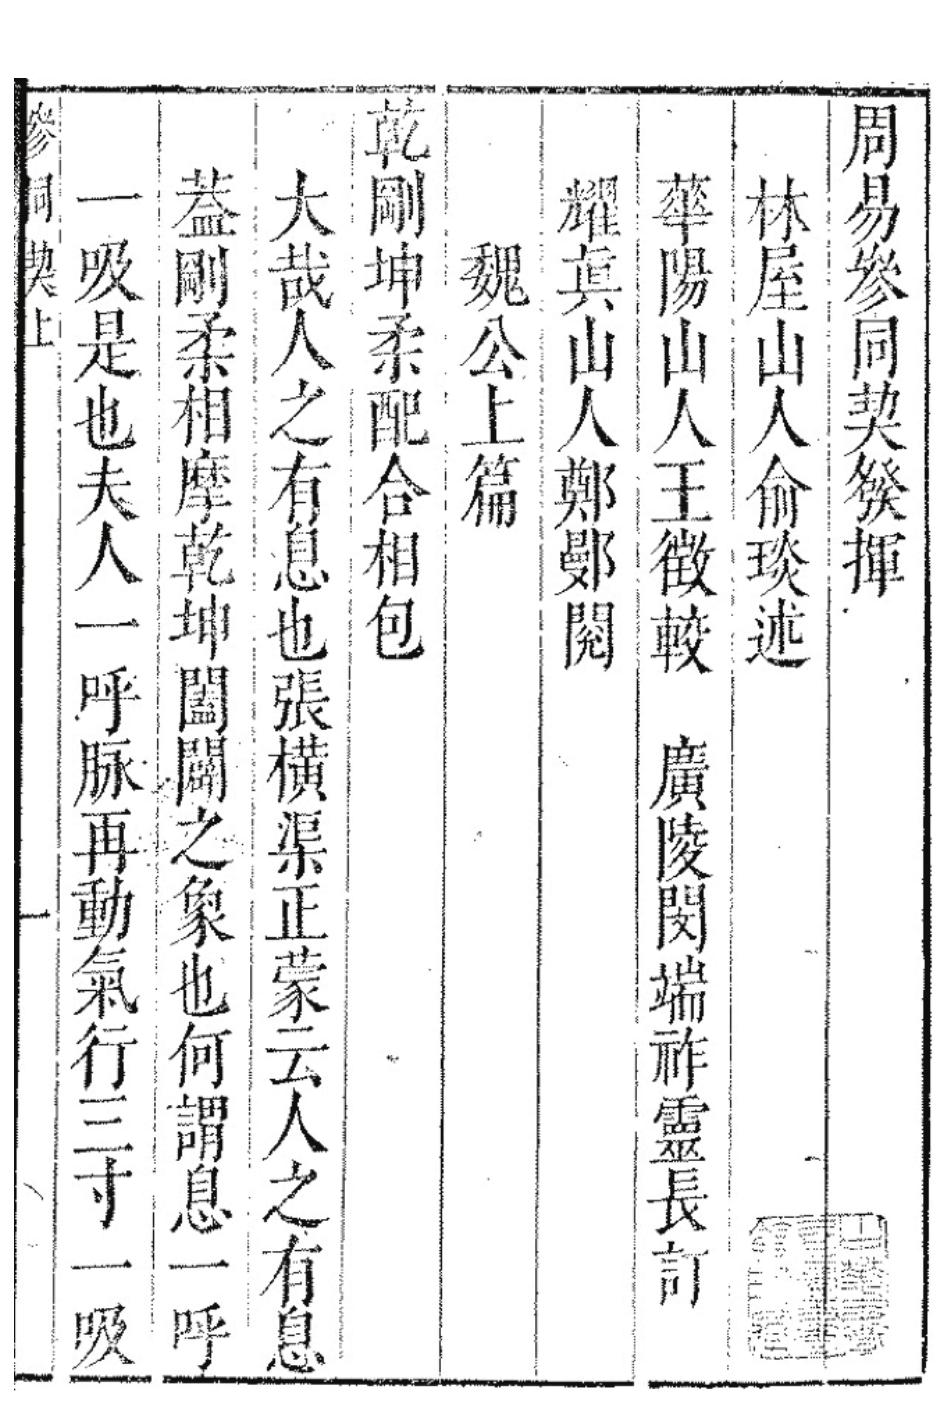 周易參同契發揮
林屋山人俞琰述
華陽山人王徵較　廣陵閔端祚靈長訂
耀眞山人鄭鄤閱
魏公上篇
乾剛坤柔配合相包
大哉人之有息也張橫渠正蒙云人之有息
蓋剛柔相摩乾坤闔闢之象也何謂息一呼
一吸是也夫人一呼脉再動氣行三寸一吸
參同契上　一